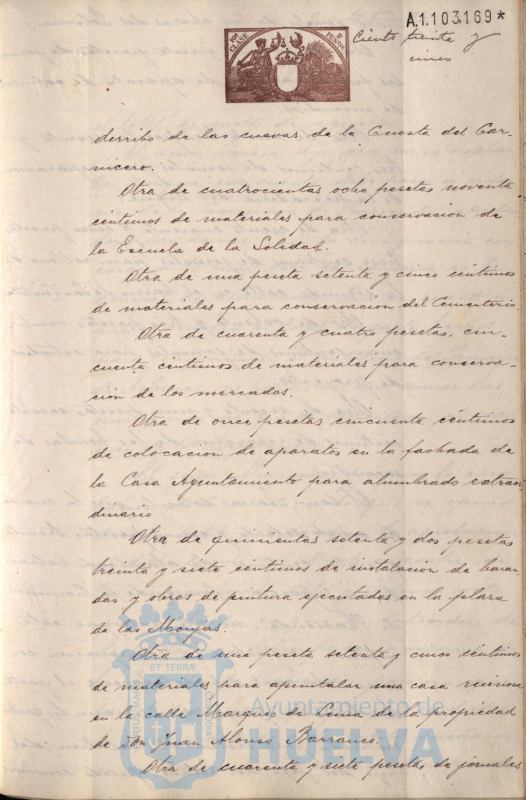 10ª CLASE 2 PESETAS
A.1.103.169*
Ciento treinta y
cinco
derribo de las cuevas de la Cuesta del Car-
nicero.
Otra de cuatrocientas ocho pesetas noventa
céntimos de materiales para conservacion de
la Escuela de la Soledad.
Otra de una peseta setenta y cinco céntimos
de materiales para conservacion del Cementerio
Otra de cuarenta y cuatro pesetas, cin-
cuenta centimos de materiales para conserva-
ción de los mercados.
Otra de once pesetas cincuenta céntimos
de colocacion de aparatos en la fachada de
la Casa Ayuntamiento para alumbrado extraor-
dinario
Otra de quinientas setenta y dos pesetas
treinta y siete céntimos de instalacion de baran-
das y obras de pintura ejecutadas en la plaza
de las Monjas.
Otra de una peseta setenta y cinco céntimos
de materiales para apuntalar una casa ruinosa
en la calle Marques de Lema de la propiedad
de Don Juan Alonso Barranco.
Otra de cuarenta y siete pesetas de jornales
ET TERRÆ
PORTUS MARIS
CUSTODIA
Ayuntamiento de
HUELVA